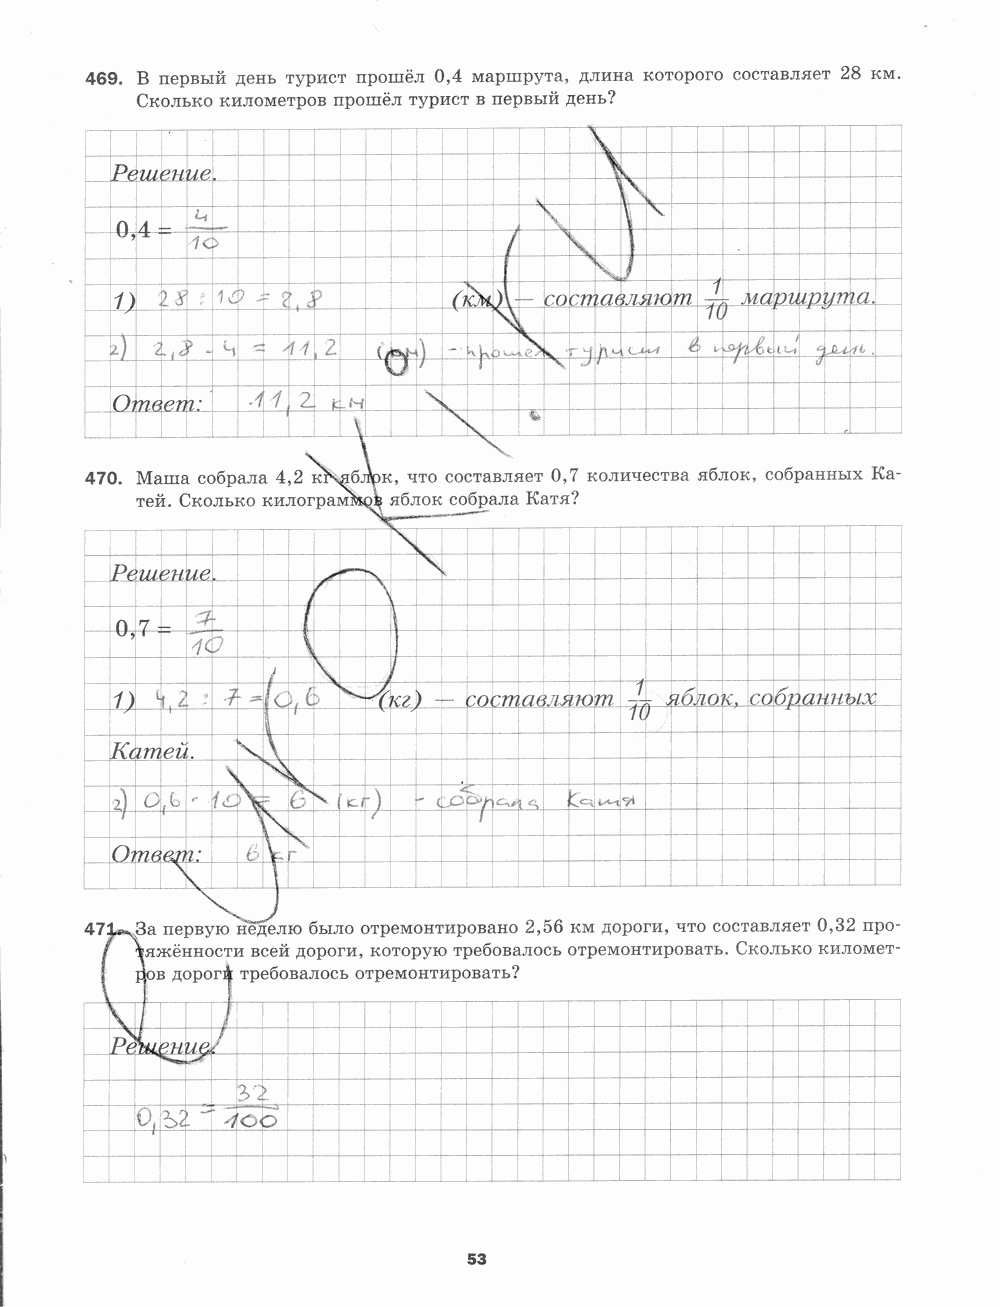 469. В первый день турист прошёл 0,4 маршрута, длина которого составляет 28 км.
Сколько километров прошёл турист в первый день?
Решение.
0,4 = 4/10
1) 28 : 10 = 2,8 (км) — составляют 1/10 маршрута.
2) 2,8 · 4 = 11,2 (км) - прошел турист в первый день.
Ответ: 11,2 км
470. Маша собрала 4,2 кг яблок, что составляет 0,7 количества яблок, собранных Ка-
тей. Сколько килограммов яблок собрала Катя?
Решение.
0,7 = 7/10
1) 4,2 : 7 = 0,6 (кг) — составляют 1/10 яблок, собранных
Катей.
2) 0,6 · 10 = 6 (кг) - собрала Катя
Ответ: 6 кг
471. За первую неделю было отремонтировано 2,56 км дороги, что составляет 0,32 про-
тяжённости всей дороги, которую требовалось отремонтировать. Сколько километ-
ров дороги требовалось отремонтировать?
Решение.
0,32 = 32/100
53